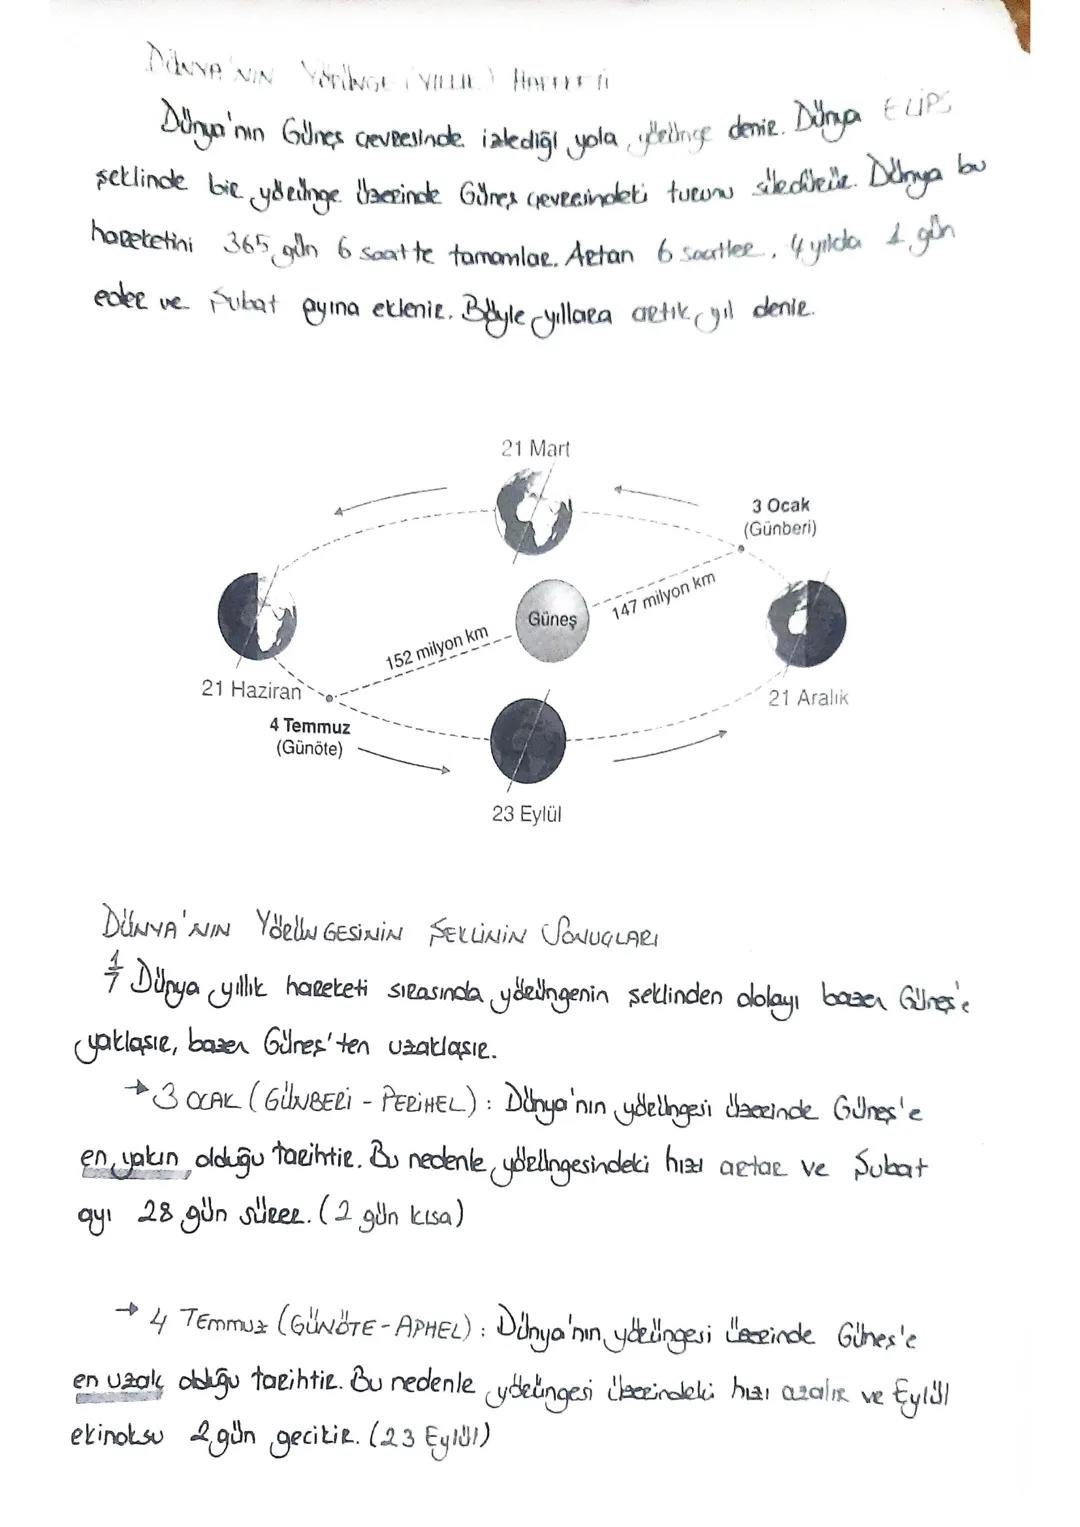 DÜNYA'NIN YÖRÜNGE (YILLIK) HAREKETİ
Dünya'nın Güneş çevresinde izlediği yola yörünge denir. Dünya ELİPS
şeklinde bir yörünge üzerinde Güneş çevresindeki turunu sürdürür. Dünya bu
hareketini 365 gün 6 saatte tamamlar. Artan 6 saatler, 4 yılda 1 gün
eder ve Şubat ayına eklenir. Böyle yıllara artık yıl denir.
21 Mart
3 Ocak
(Günberi)
147 milyon km
Güneş
152 milyon km
21 Haziran
21 Aralık
4 Temmuz
(Günöte)
23 Eylül
DÜNYA'NIN YÖRÜNGESİNİN ŞEKLİNİN SONUÇLARI
1 Dünya yıllık hareketi sırasında yörüngenin şeklinden dolayı bazen Güneş'e
yaklaşır, bazen Güneş'ten uzaklaşır.
→ 3 OCAK (GÜNBERİ - PERİHEL) : Dünya'nın yörüngesi üzerinde Güneş'e
en yakın olduğu tarihtir. Bu nedenle yörüngesindeki hızı artar ve Şubat
ayı 28 gün sürer. (2 gün kısa)
→ 4 TEMMUZ (GÜNÖTE - APHEL) : Dünya'nın yörüngesi üzerinde Güneş'e
en uzak olduğu tarihtir. Bu nedenle yörüngesi üzerindeki hızı azalır ve Eylül
ekinoksu 2 gün gecikir. (23 Eylül)